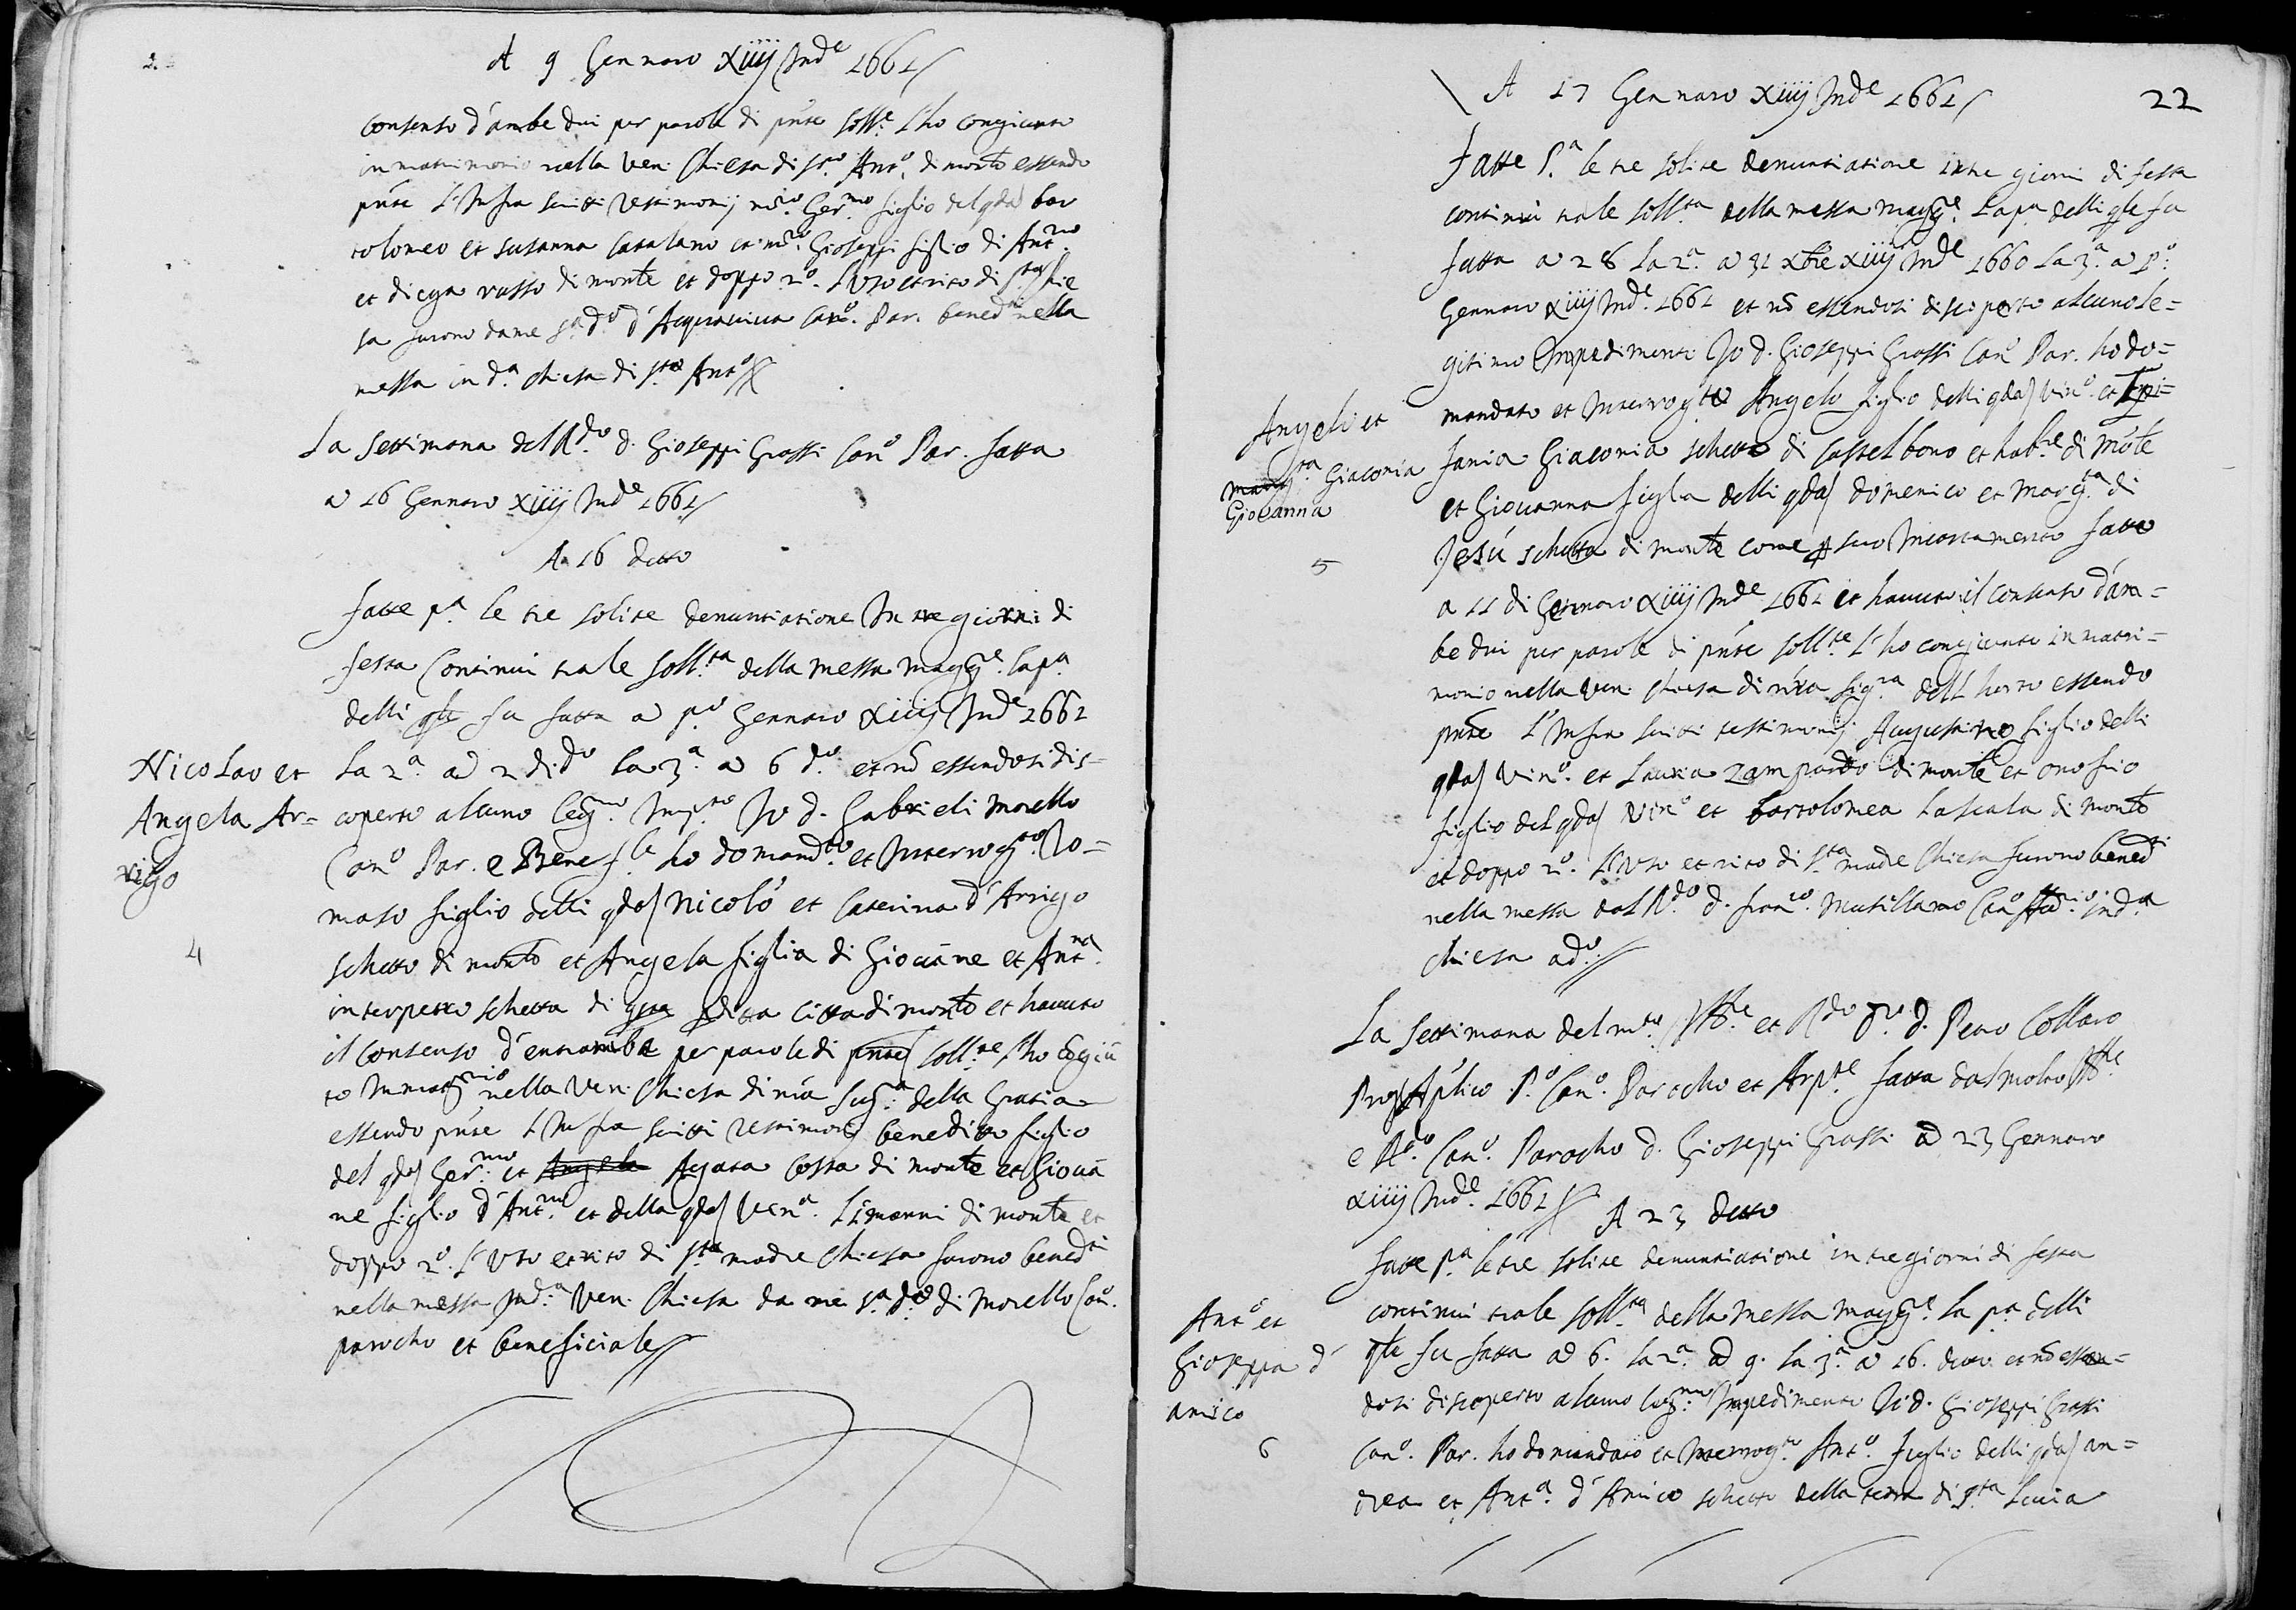 A 9 Gennaro xiiij Ind.e 1661
consenso d'ambe dui per parole di p̄nte soll.te l'ho congiunto
in matrimonio nella Ven. Chiesa di S.to Ant.o di monte essendo
p̄nte l'Infra scritti testimonij m.ro Ger.mo figlio del qda bar
tolomeo et Susanna Catalano et m.ro Gioseppi figlio di Ant.no
et diega russo di monte et doppo 2.o l'Uso et rito di s.ta Chie
sa furono da me S.a d.o d'Acquaviva Can.o Par. bened.ti nella
messa in d.a chiesa di S.to Ant.o
La Settimana del R.do d. Gioseppi Grassi Can.o Par. fatta
a 16 Gennaro xiiij Ind.e 1661
A 16 detto
Fatte p.a le tre solite denuntiatione In tre giorni di
festa Continui tra le soll.ta della messa magg.re la p.a
delli q̄le fu fatta a p.o Gennaro xiiij Ind.e 1661
Nicolao et
Angela Ar=
rigo
4
la 2.a a 2 di d.o la 3.a a 6 d.o et nō essendosi dis=
coperto alcuno leg.mo Imp.to Io d. Gabrieli Morello
Can.o Par. e Benef.le ho domand.to et Interrog.to To=
maso figlio delli qda Nicolò et Caterina d'Arrigo
schetto di monte et Angela figlia di Giouāne et Ant.na
interpetro schetta di q̄sta p̄ditta citta di monte et hauuto
il Consenso d'entrambe per parole di p̄nte soll.te l'ho cōgiū
to In matr.nio nella Ven. Chiesa di n̄ra Sig.a della Gratia
essendo p̄nte l'Infra scritti testimonij beneditto figlio
del qda Ger.mo et Angela Agata Costa di monte et Giouā
ne figlio d'Ant.no et della qda Vin.a Limanni di monte et
doppo 2.o l'Uso et rito di s.ta madre Chiesa furono bened.ti
nella messa In d.a Ven. Chiesa da me S.a d.o di Morello Can.o
parocho et beneficiale
A 17 Gennaro xiiij Ind.e 1661
22
Fatte P.a le tre solite denuntiatione in tre giorni di festa
continui tra le soll.ta della messa magg.re La p.a delli q̄le fu
fatta a 28 la 2.a a 31 xbre xiiij Ind.e 1660 la 3.a a P.o
Gennaro xiiij Ind.e 1661 et nō essendosi discoperto alcuno le=
gitimo Impedimento Io d. Gioseppi Grassi Can.o Par. ho do=
Angelo et
Marg.ta Giaconia
Giovanna
5
mandato et Interrog.to Angelo figlio delli qda Vin.o et Epi=
fania Giaconia schetto di Castelbono et hab.re di mōte
et Giouanna figlia delli qda domenico et Marg.ta di
Jesù schetta di monte come p suo Incartamento fatto
a 11 di Gennaro xiiij Ind.e 1661 et hauuto il consenso d'am=
be dui per parole di p̄nte soll.te l'ho congiunto in matri=
monio nella Ven. chiesa di n̄ra Sig.ra dell horto essendo
p̄nte l'Infra scritti testimonij Augustino figlio delli
qda Vin.o et Lauria Zampardo di monte et onofrio
figlio del qda Vin.o et bartolomea La scala di monte
et doppo 2.o l'Uso et rito di s.ta madre Chiesa furono bened.ti
nella messa dal R.do d. fran.co Musillamo Can.o in d.a
chiesa a d.o
La Settimana del m.to Ill.e et R.do D.re d. Petro Collaro
Prog. Aplico P.o Can.o Parocho et Arp.te fatta dal molto Ill.e
e R.do Can.o Parocho d. Gioseppi Grassi a 23 Gennaro
xiiij Ind.e 1661
A 23 detto
Fatte P.a le tre solite denuntiatione in tre giorni di festa
Ant.o et
Gioseppa d'
amico
6
continui tra le soll.ta della Messa magg.re la p.a delli
q̄le fu fatta a 6. la 2.a a 9. la 3.a a 16. detto et nō essen=
dosi discoperto alcuno leg.mo Impedimento Io d. Gioseppi Grassi
Can.o Par. ho domandato et Interrog.to Ant.o figlio delli qda an=
drea et Ant.a d'Amico schetto della terra di S.ta Lucia